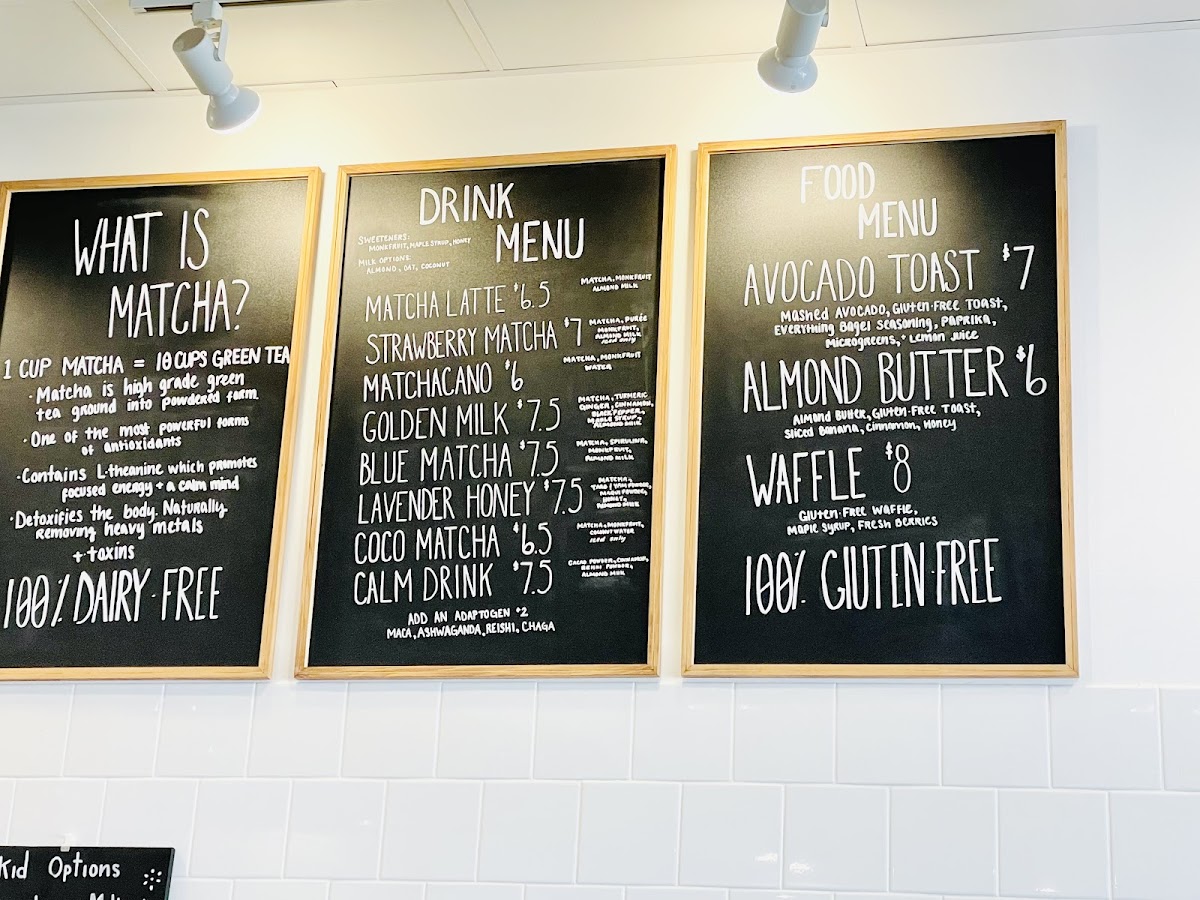 WHAT IS
MATCHA?
1 CUP MATCHA = 10 CUPS GREEN TEA
· Matcha is high grade green
tea ground into powdered form.
· One of the most powerful forms
of antioxidants
· Contains L-theanine which promotes
focused energy + a calm mind
· Detoxifies the body. Naturally
removing heavy metals
+ toxins
100% DAIRY-FREE
DRINK
MENU
SWEETENERS:
MONKFRUIT, MAPLE SYRUP, HONEY
MILK OPTIONS:
ALMOND, OAT, COCONUT
MATCHA LATTE $6.5
MATCHA, MONKFRUIT
ALMOND MILK
STRAWBERRY MATCHA $7
MATCHA, PURÉE
MONKFRUIT,
ALMOND MILK
iced only
MATCHACANO $6
MATCHA, MONKFRUIT
WATER
GOLDEN MILK $7.5
MATCHA, TURMERIC
GINGER, CINNAMON,
BLACK PEPPER,
MAPLE SYRUP,
ALMOND MILK
BLUE MATCHA $7.5
MATCHA, SPIRULINA,
MONKFRUIT,
ALMOND MILK
LAVENDER HONEY $7.5
MATCHA,
HONEY,
ALMOND MILK
COCO MATCHA $6.5
MATCHA, MONKFRUIT,
COCONUT WATER
iced only
CALM DRINK $7.5
CACAO POWDER, CINNAMON,
REISHI POWDER,
ALMOND MILK
ADD AN ADAPTOGEN $2
MACA, ASHWAGANDA, REISHI, CHAGA
FOOD
MENU
AVOCADO TOAST $7
Mashed AVOCADO, Gluten-Free Toast,
Everything Bagel Seasoning, Paprika,
Microgreens, + Lemon Juice
ALMOND BUTTER $6
Almond Butter, Gluten-Free Toast,
Sliced Banana, Cinnamon, Honey
WAFFLE $8
Gluten-Free Waffle,
Maple Syrup, Fresh Berries
100% GLUTEN-FREE
Kid Options